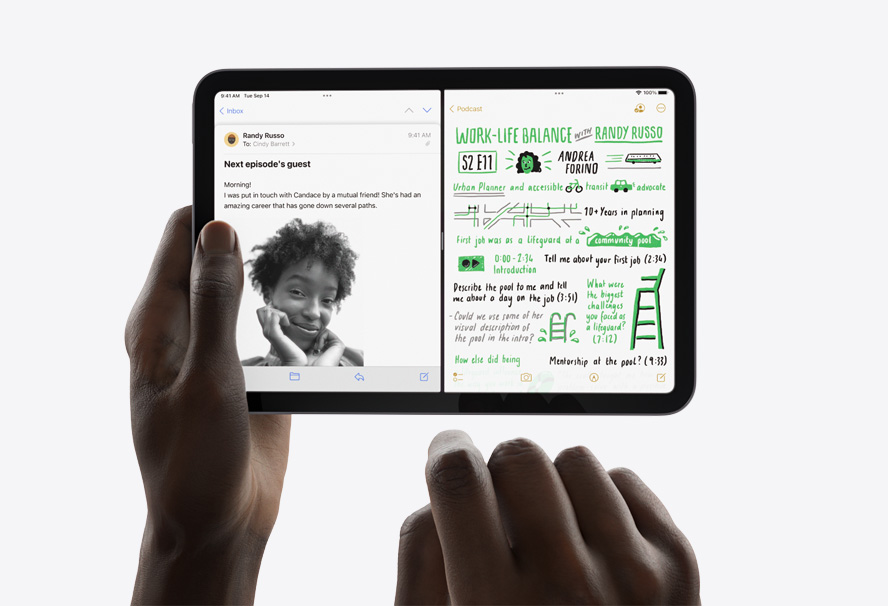 9:41 AM Tue Sep 14
100%
Inbox
Randy Russo
9:41 AM
To: Cindy Barrett
Next episode's guest
Morning!
I was put in touch with Candace by a mutual friend! She's had an
amazing career that has gone down several paths.
Podcast
WORK-LIFE BALANCE WITH RANDY RUSSO
S2 E11
ANDREA
FORINO
Urban Planner and accessible transit advocate
10+ Years in planning
First job was as a lifeguard at a community pool
0:00 - 2:34
Introduction
Tell me about your first job (2:34)
Describe the pool to me and tell
me about a day on the job (3:51)
- Could we use some of her
visual description of
the pool in the intro?
What were
the biggest
challenges
you faced as
a lifeguard?
(7:12)
How else did being
Mentorship at the pool? (9:33)